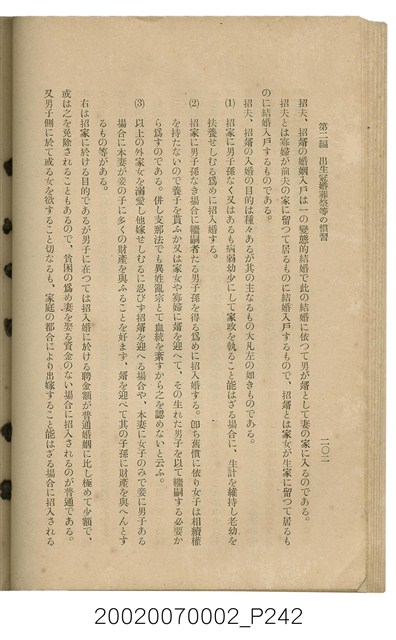 第二編　出生冠婚葬祭等の慣習
二〇二
招夫、招婿の婚姻入戸は一の變態的結婚で此の結婚に依つて男が婿として妻の家に入るのである。
招夫とは寡婦が前夫の家に留つて居るものに結婚入戸するもので、招婿とは家女が生家に留つて居るも
のに結婚入戸するものである。
招夫、招婿の入婚の目的は種々あるが其の主なるもの大凡左の如きものである。
(1) 招家に男子孫なく又はあるも病弱幼少にして家政を執ること能はざる場合に、生計を維持し老幼を
扶養せしむる爲めに招入婚する。
(2) 招家に男子孫なき場合に繼嗣者たる男子孫を得る爲めに招入婚する。卽ち舊慣に依り女子は相續權
を持たないので養子を貰ふか又は家女や寡婦に婿を迎へて、その生れた男子を以て繼嗣する必要か
ら爲すのである。併し支那法でも異姓亂宗とて血統を紊すから之を認めないと云ふ。
(3) 以上の外家女を溺愛し他嫁せしむるに忍びず招婿を迎へる場合や、本妻に女子のみで妾に男子ある
場合に本妻が妾の子に多くの財產を與ふることを好まず、婿を迎へて其の子孫に財產を與へんとす
るもの等がある。
右は招家に於ける目的であるが男子に在つては招入婚に於ける聘金額が普通婚姻に比し極めて少額で、
或は之を免除されることもあるので、貧困の爲め妻を娶る資金のない場合に招入されるのが普通である。
又男子側に於て或る女を欲すること切なるも、家庭の都合により出嫁すること能はざる場合に招入される
20020070002_P242